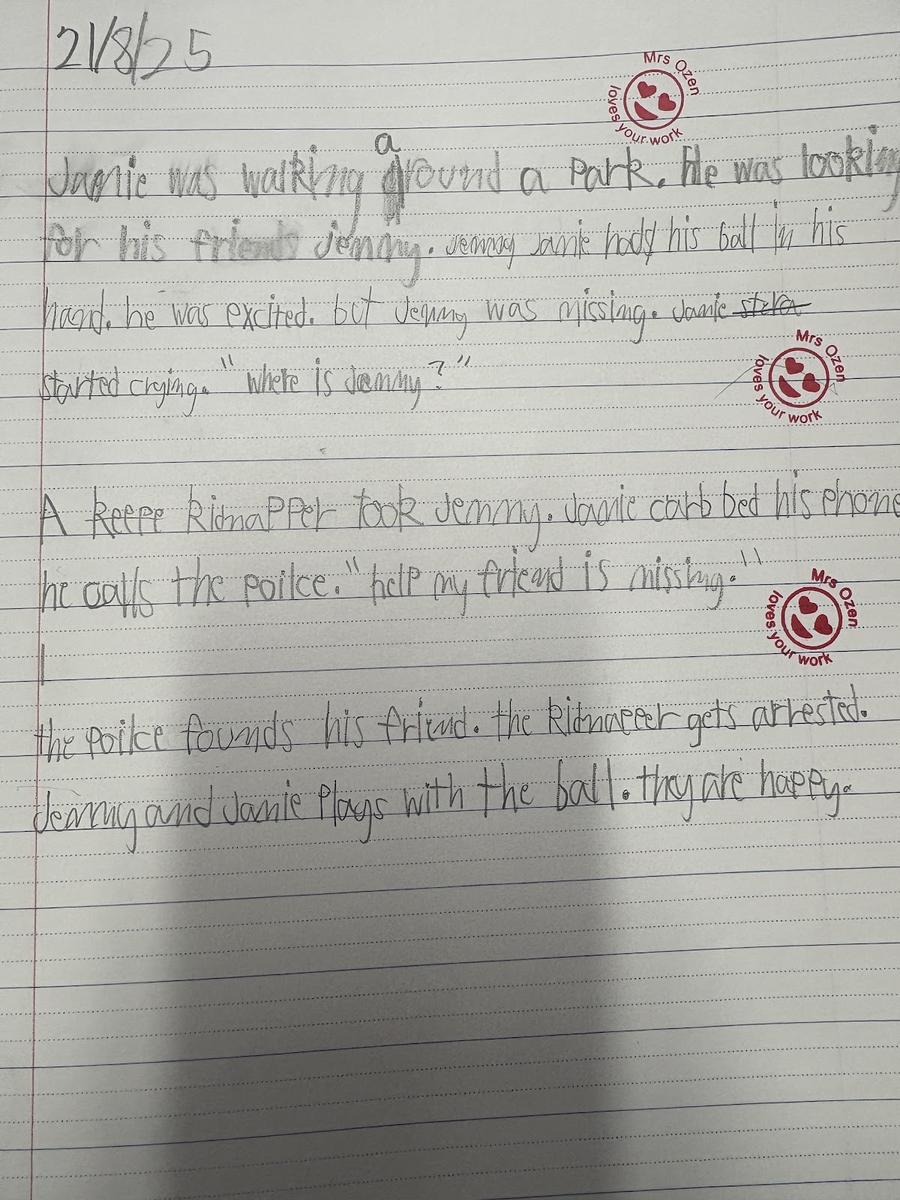 21/8/25
Mrs Ozen loves your work
a
Jamie was walking around a park. He was looking
for his friends Jemmy. Jemmy Jamie hody his ball in his
hand. he was excited. but Jemmy was missing. Jamie
started crying. "where is Jemmy?"
Mrs Ozen loves your work
A keepe kidnapper took Jemmy. Jamie carb bed his phone
he calls the poilce. "help my friend is missing."
Mrs Ozen loves your work
the poilce founds his friend. the kidnapeer gets arrested.
Jemmy and Jamie plays with the ball. they are happy.